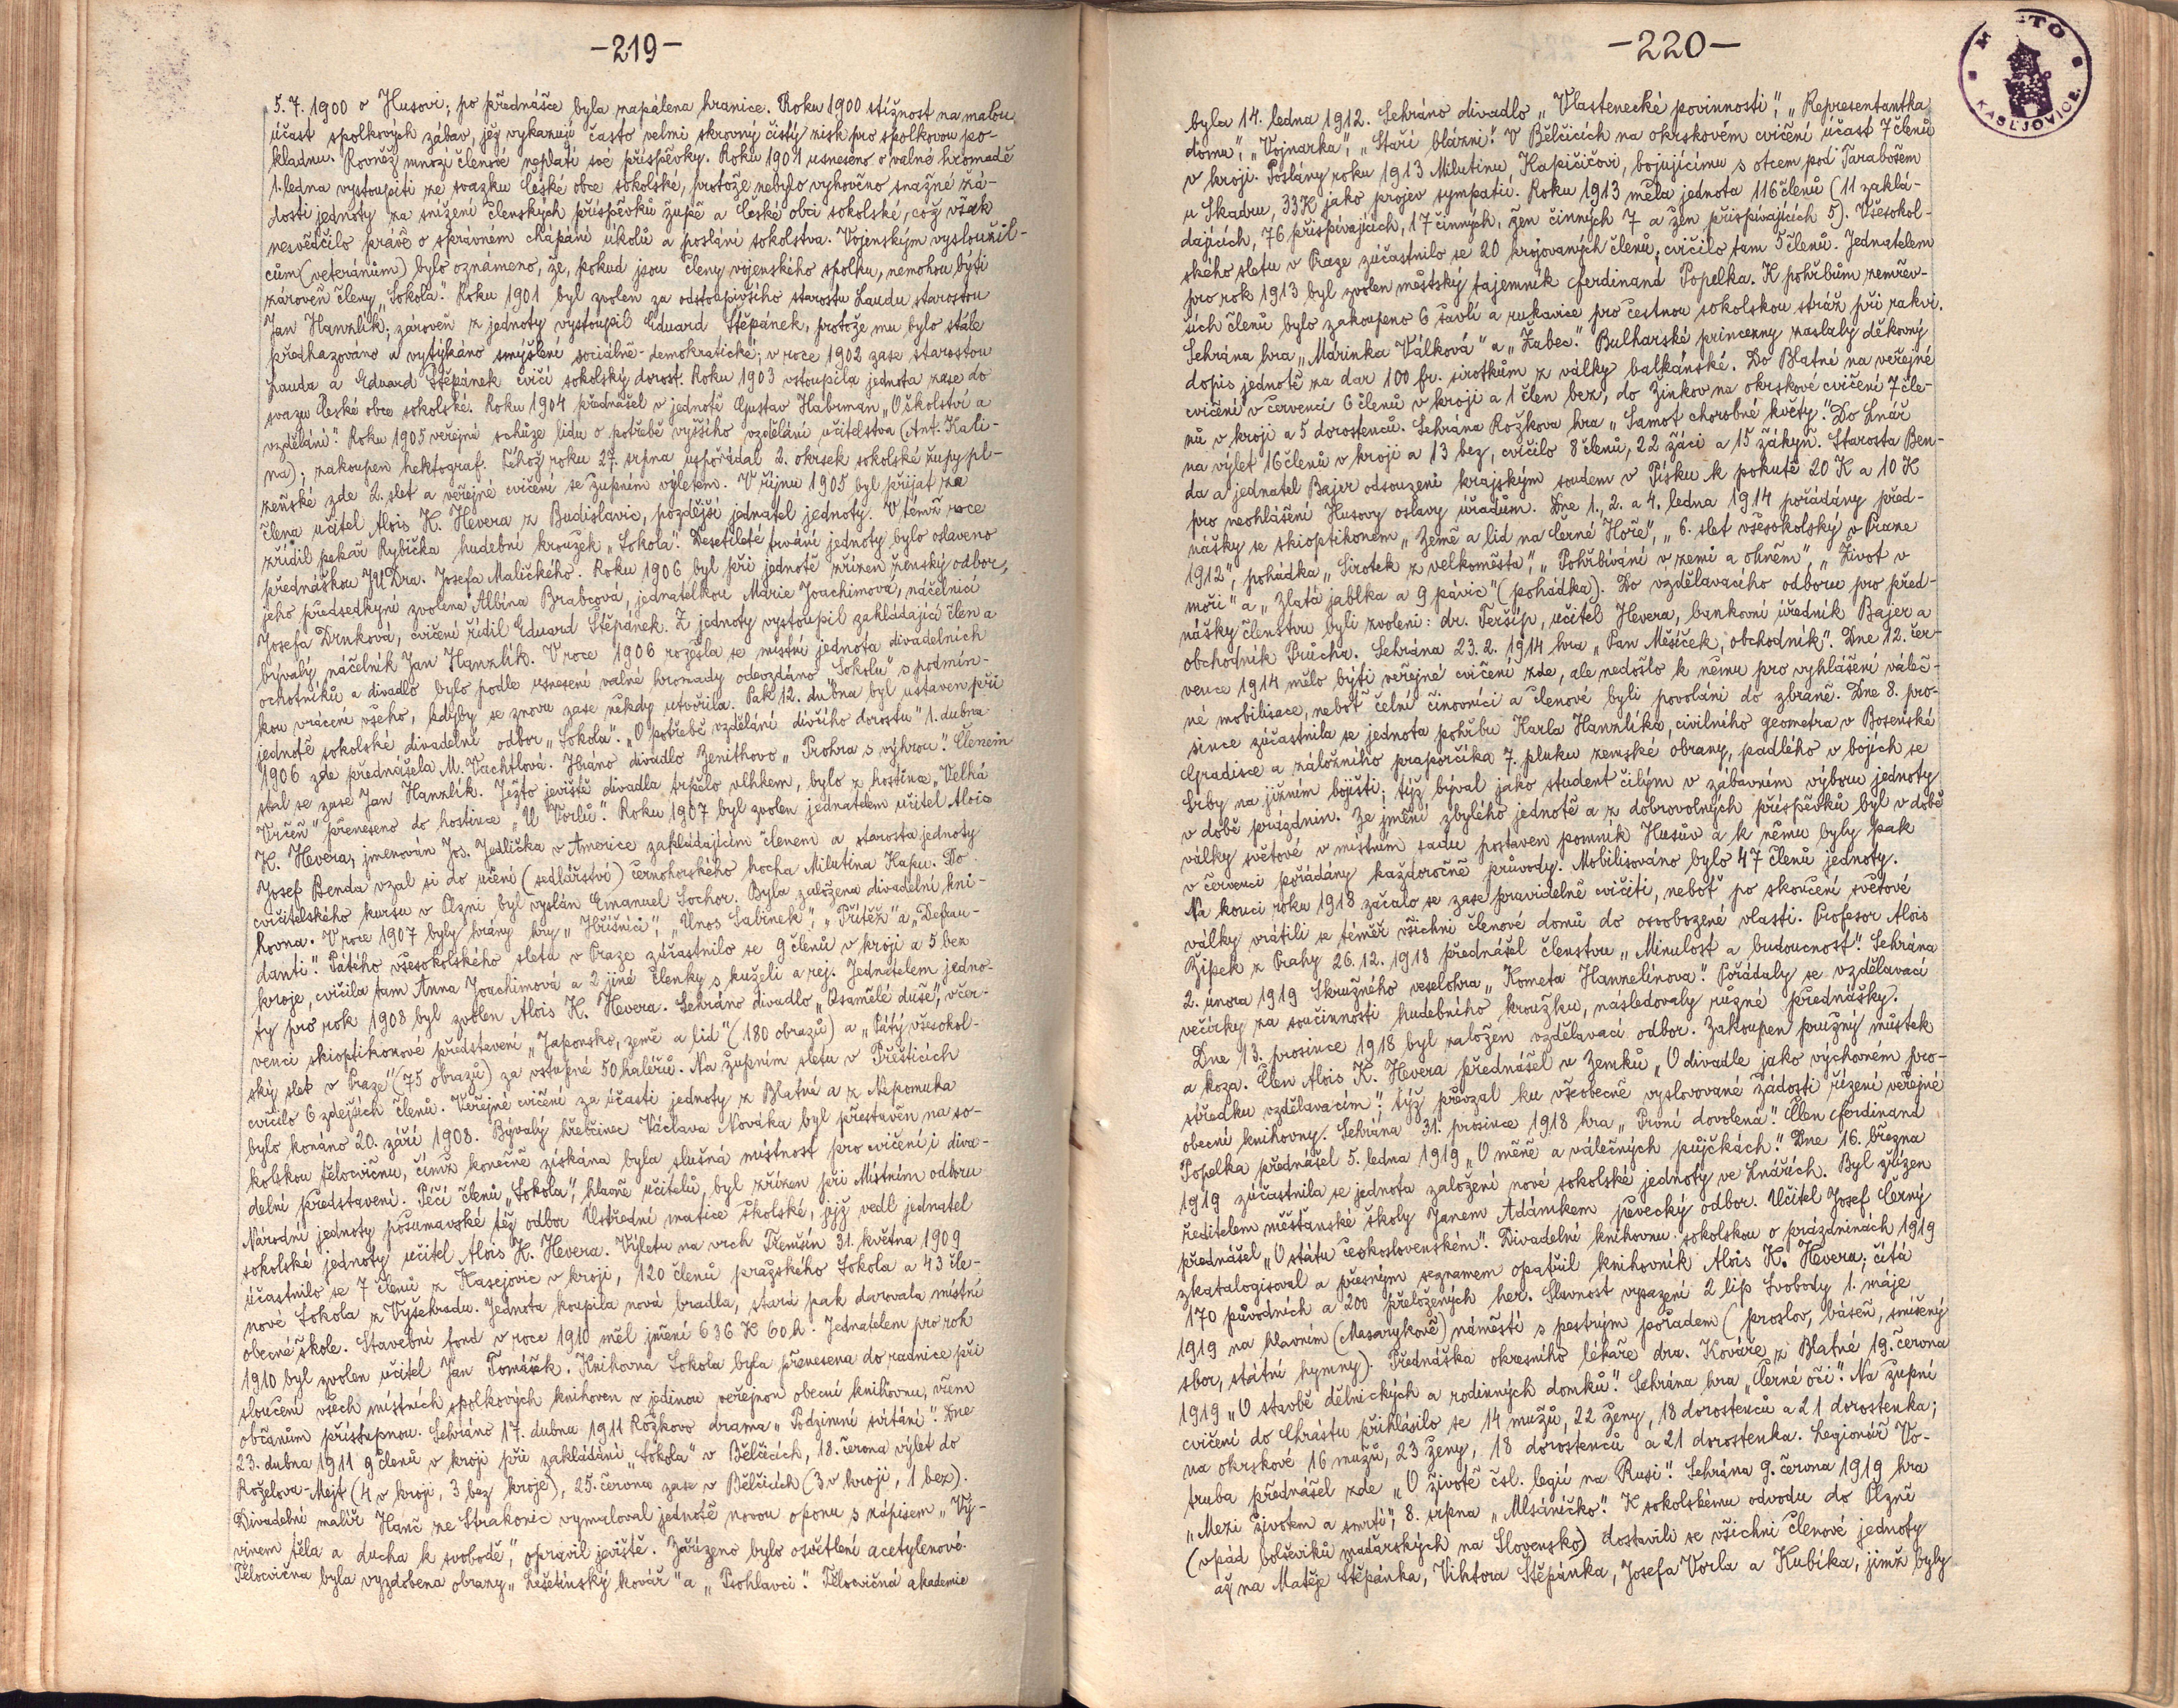 -219-
5. 7. 1900 o Husovi; po přednášce byla zapálena hranice. Roku 1900 stížnost na malou
účast spolkových zábav, jež vykazují často velmi skrovný čistý zisk pro spolkovou po-
kladnu. Rovněž mnozí členové neplatí své příspěvky. Roku 1901 usneseno o valné hromadě
1. ledna vystoupiti ze svazku České obce sokolské, protože nebylo vyhověno snažné žá-
dosti jednoty za snížení členských příspěvků župě a České obci sokolské, což však
nesvědčilo právě o správném chápání úkolů a poslání sokolstva. Vojenským vysloužil-
cům (veteránům) bylo oznámeno, že, pokud jsou členy vojenského spolku, nemohou býti
zároveň členy „Sokola". Roku 1901 byl zvolen za odstoupivšího starostu Laudu starostou
Jan Hanzlík; zároveň z jednoty vystoupil Eduard Štěpánek, protože mu bylo stále
předhazováno a vytýkáno smýšlení sociálně-demokratické; v roce 1902 zase starostou
Lauda a Eduard Štěpánek cvičí sokolský dorost. Roku 1903 vstoupila jednota zase do
svazu České obce sokolské. Roku 1904 přednášel v jednotě Gustav Habrman „O školství a
vzdělání". Roku 1905 veřejná schůze lidu o potřebě vyššího vzdělání učitelstva (Ant. Kali-
na); zakoupen hektograf. Téhož roku 27. srpna uspořádal 2. okrsek sokolské župy pl-
zeňské zde 2. slet a veřejné cvičení se župním výletem. V říjnu 1905 byl přijat za
člena učitel Alois K. Hevera z Budislavic, pozdější jednatel jednoty. V témž roce
zřídil pekař Rybička hudební kroužek „Sokola". Desetileté trvání jednoty bylo oslaveno
přednáškou JUDra. Josefa Maličkého. Roku 1906 byl při jednotě zřízen ženský odbor,
jeho předsedkyní zvolena Albína Brabcová, jednatelkou Marie Joachimová, náčelnicí
Josefa Drnková, cvičení řídil Eduard Štěpánek. Z jednoty vystoupil zakládající člen a
bývalý náčelník Jan Hanzlík. V roce 1906 rozešla se místní jednota divadelních
ochotníků a divadlo bylo podle usnesení valné hromady odevzdáno „Sokolu" s podmín-
kou vrácení všeho, kdyby se znovu zase někdy utvořila. Pak 12. dubna byl ustaven při
jednotě sokolské divadelní odbor „Sokola". „O potřebě vzdělání dívčího dorostu" 1. dubna
1906 zde přednášela M. Vachtlová. Hráno divadlo Zenithovo „Prohra s výhrou". Členem
stal se zase Jan Hanzlík. Ježto jeviště divadla trpělo vlhkem, bylo z hostince „Velká
Vrčeň" přeneseno do hostince „U Vorlů". Roku 1907 byl zvolen jednatelem učitel Alois
K. Hevera, jmenován Jos. Jedlička v Americe zakládajícím členem a starosta jednoty
Josef Benda vzal si do učení (sedlářství) černohorského hocha Milutina Kapu. Do
cvičitelského kursu v Plzni byl vyslán Emanuel Sochor. Byla založena divadelní kni-
hovna. V roce 1907 byly hrány hry „Hříšníci", „Únos Sabinek", „Přítěž" a „Defrau-
danti". Pátého všesokolského sletu v Praze zúčastnilo se 9 členů v kroji a 5 bez
kroje, cvičila tam Anna Joachimová a 2 jiné členky s kuželi a rej. Jednatelem jedno-
ty pro rok 1908 byl zvolen Alois K. Hevera. Sehráno divadlo „Osamělé duše", v čer-
venci skioptikonové představení „Japonsko, země a lid" (180 obrazů) a „Pátý všesokol-
ský slet v Praze" (75 obrazů) za vstupné 50 haléřů. Na župním sletu v Přešticích
cvičilo 6 zdejších členů. Veřejné cvičení za účasti jednoty z Blatné a z Nepomuka
bylo konáno 20. září 1908. Bývalý hřebčinec Václava Nováka byl přestavěn na so-
kolskou tělocvičnu, čímž konečně získána byla slušná místnost pro cvičení i diva-
delní představení. Péčí členů „Sokola", hlavně učitelů, byl zřízen při Místním odboru
Národní jednoty pošumavské též odbor Ústřední matice školské, jejž vedl jednatel
sokolské jednoty učitel Alois K. Hevera. Výletu na vrch Třemšín 31. května 1909
účastnilo se 7 členů z Kasejovic v kroji, 120 členů pražského Sokola a 43 čle-
nové Sokola z Vyšehradu. Jednota koupila nová bradla, stará pak darovala místní
obecné škole. Stavební fond v roce 1910 měl jmění 636 K 60 h. Jednatelem pro rok
1910 byl zvolen učitel Jan Tomášek. Knihovna Sokola byla přenesena do radnice při
sloučení všech místních spolkových knihoven v jedinou veřejnou obecní knihovnu, všem
občanům přístupnou. Sehráno 17. dubna 1911 Rožkovo drama „Podzimní svítání". Dne
23. dubna 1911 9 členů v kroji při zakládání „Sokola" v Bělčicích, 18. června výlet do
Roželova-Mejt (4 v kroji, 3 bez kroje), 25. června zase v Bělčicích (3 v kroji, 1 bez).
Divadelní malíř Hanč ze Strakonic vymaloval jednotě novou oponu s nápisem „Vý-
vinem těla a ducha k svobodě", opravil jeviště. Zařízeno bylo osvětlení acetylenové.
Tělocvična byla vyzdobena obrazy „Lešetínský kovář" a „Psohlavci". Tělocvičná akademie
-220-
MĚSTO
KASEJOVICE.
byla 14. ledna 1912. Sehráno divadlo „Vlastenecké povinnosti", „Representantka
domu", „Vojnarka", „Staří blázni". V Bělčicích na okrskovém cvičení účast 7 členů
v kroji. Poslány roku 1913 Milutinu Kapičičovi, bojujícímu s otcem pod Tarabošem
u Skadru, 33 K jako projev sympatií. Roku 1913 měla jednota 116 členů (11 zaklá-
dajících, 76 přispívajících, 17 činných, žen činných 7 a žen přispívajících 5). Všesokol-
ského sletu v Praze zúčastnilo se 20 krojovaných členů, cvičilo tam 5 členů. Jednatelem
pro rok 1913 byl zvolen městský tajemník Ferdinand Popelka. K pohřbům zemřev-
ších členů bylo zakoupeno 6 šavlí a rukavice pro čestnou sokolskou stráž při rakvi.
Sehrána hra „Marinka Válková" a „Žabec". Bulharské princezny zaslaly děkovný
dopis jednotě za dar 100 fr. sirotkům z války balkánské. Do Blatné na veřejné
cvičení v červenci 6 členů v kroji a 1 člen bez, do Žinkov na okrskové cvičení 7 čle-
nů v kroji a 5 dorostenců. Sehrána Rožkova hra „Samot chorobné květy". Do Lnář
na výlet 16 členů v kroji a 13 bez, cvičilo 8 členů, 22 žáci a 15 žákyň. Starosta Ben-
da a jednatel Bajer odsouzeni krajským soudem v Písku k pokutě 20 K a 10 K
pro neohlášení Husovy oslavy úřadům. Dne 1., 2. a 4. ledna 1914 pořádány před-
nášky se skioptikonem „Země a lid na Černé Hoře", „6. slet všesokolský v Praze
1912", pohádka „Sirotek z velkoměsta", „Pohřbívání v zemi a ohněm", „Život v
moři" a „Zlatá jablka a 9 pávic" (pohádka). Do vzdělavacího odboru pro před-
nášky členstvu byli zvoleni: dr. Teršíp, učitel Hevera, bankovní úředník Bajer a
obchodník Průcha. Sehrána 23. 2. 1914 hra „Pan Měšíček, obchodník". Dne 12. čer-
vence 1914 mělo býti veřejné cvičení zde, ale nedošlo k němu pro vyhlášení váleč-
né mobilisace, neboť čelní činovníci a členové byli povoláni do zbraně. Dne 8. pro-
since zúčastnila se jednota pohřbu Karla Hanzlíka, civilního geometra v Bosenské
Gradisce a záložního praporčíka 7. pluku zemské obrany, padlého v bojích se
Srby na jižním bojišti; týž býval jako student čilým v zábavním výboru jednoty
v době prázdnin. Ze jmění zbylého jednotě a z dobrovolných příspěvků byl v době
války světové v místním sadu postaven pomník Husův a k němu byly pak
v červenci pořádány každoročně průvody. Mobilisováno bylo 47 členů jednoty.
Na konci roku 1918 začalo se zase pravidelně cvičiti, neboť po skončení světové
války vrátili se téměř všichni členové domů do osvobozené vlasti. Profesor Alois
Žipek z Prahy 26. 12. 1918 přednášel členstvu „Minulost a budoucnost". Sehrána
2. února 1919 Skružného veselohra „Kometa Hanzelínova". Pořádaly se vzdělavací
večírky za součinnosti hudebního kroužku, následovaly různé přednášky.
Dne 13. prosince 1918 byl založen vzdělavací odbor. Zakoupen pružný můstek
a koza. Člen Alois K. Hevera přednášel u Zemků „O divadle jako výchovném pro-
středku vzdělavacím"; týž převzal ku všeobecně vyslovované žádosti řízení veřejné
obecní knihovny. Sehrána 31. prosince 1918 hra „První dovolená". Člen Ferdinand
Popelka přednášel 5. ledna 1919 „O měně a válečných půjčkách". Dne 16. března
1919 zúčastnila se jednota založení nové sokolské jednoty ve Lnářích. Byl zřízen
ředitelem měšťanské školy Janem Adámkem pěvecký odbor. Učitel Josef Černý
přednášel „O státu československém". Divadelní knihovnu sokolskou o prázdninách 1919
zkatalogisoval a přesným seznamem opatřil knihovník Alois K. Hevera; čítá
170 původních a 200 přeložených her. Slavnost vysazení 2 lip Svobody 1. máje
1919 na hlavním (Masarykově) náměstí s pestrým pořadem (proslov, báseň, smíšený
sbor, státní hymny). Přednáška okresního lékaře dra. Kováře z Blatné 19. června
1919 „O stavbě dělnických a rodinných domků". Sehrána hra „Černé oči". Na župní
cvičení do Chrástu přihlásilo se 14 mužů, 22 ženy, 18 dorostenců a 21 dorostenka;
na okrskové 16 mužů, 23 ženy, 18 dorostenců a 21 dorostenka. Legionář Vo-
truba přednášel zde „O životě čsl. legií na Rusi". Sehrána 9. června 1919 hra
„Mezi životem a smrtí", 8. srpna „Mlsáníčko". K sokolskému odvodu do Plzně
(vpád bolševiků maďarských na Slovensko) dostavili se všichni členové jednoty
až na Matěje Štěpánka, Viktora Štěpánka, Josefa Vorla a Kubíka, jimž byly